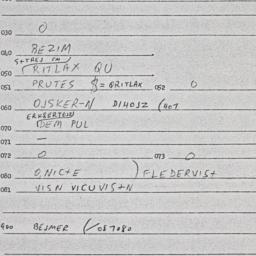 030 0
040 BEZIM
050 CRITLAX QU
051 PRUTES $ = QRITLAX 052 0
060 OJSKER-N DIHOJZ (407
070 DEM PUL
071 —
072 0 073 0
080 O,NICTE ) FLEDERVIST
081 VISN VICUVISTN
900 BESMER (/057080